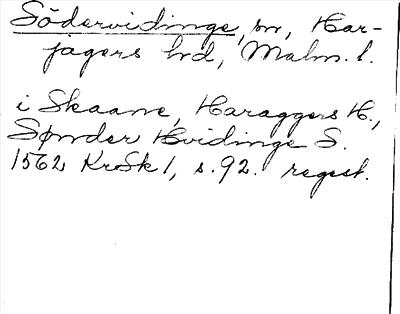 Södervidinge, sn, Har-
jagers hd, Malm. l.
i Skaane, Haraggers H.,
Sønder Hvidinge S.
1562 KrSk 1, s. 92. regest.